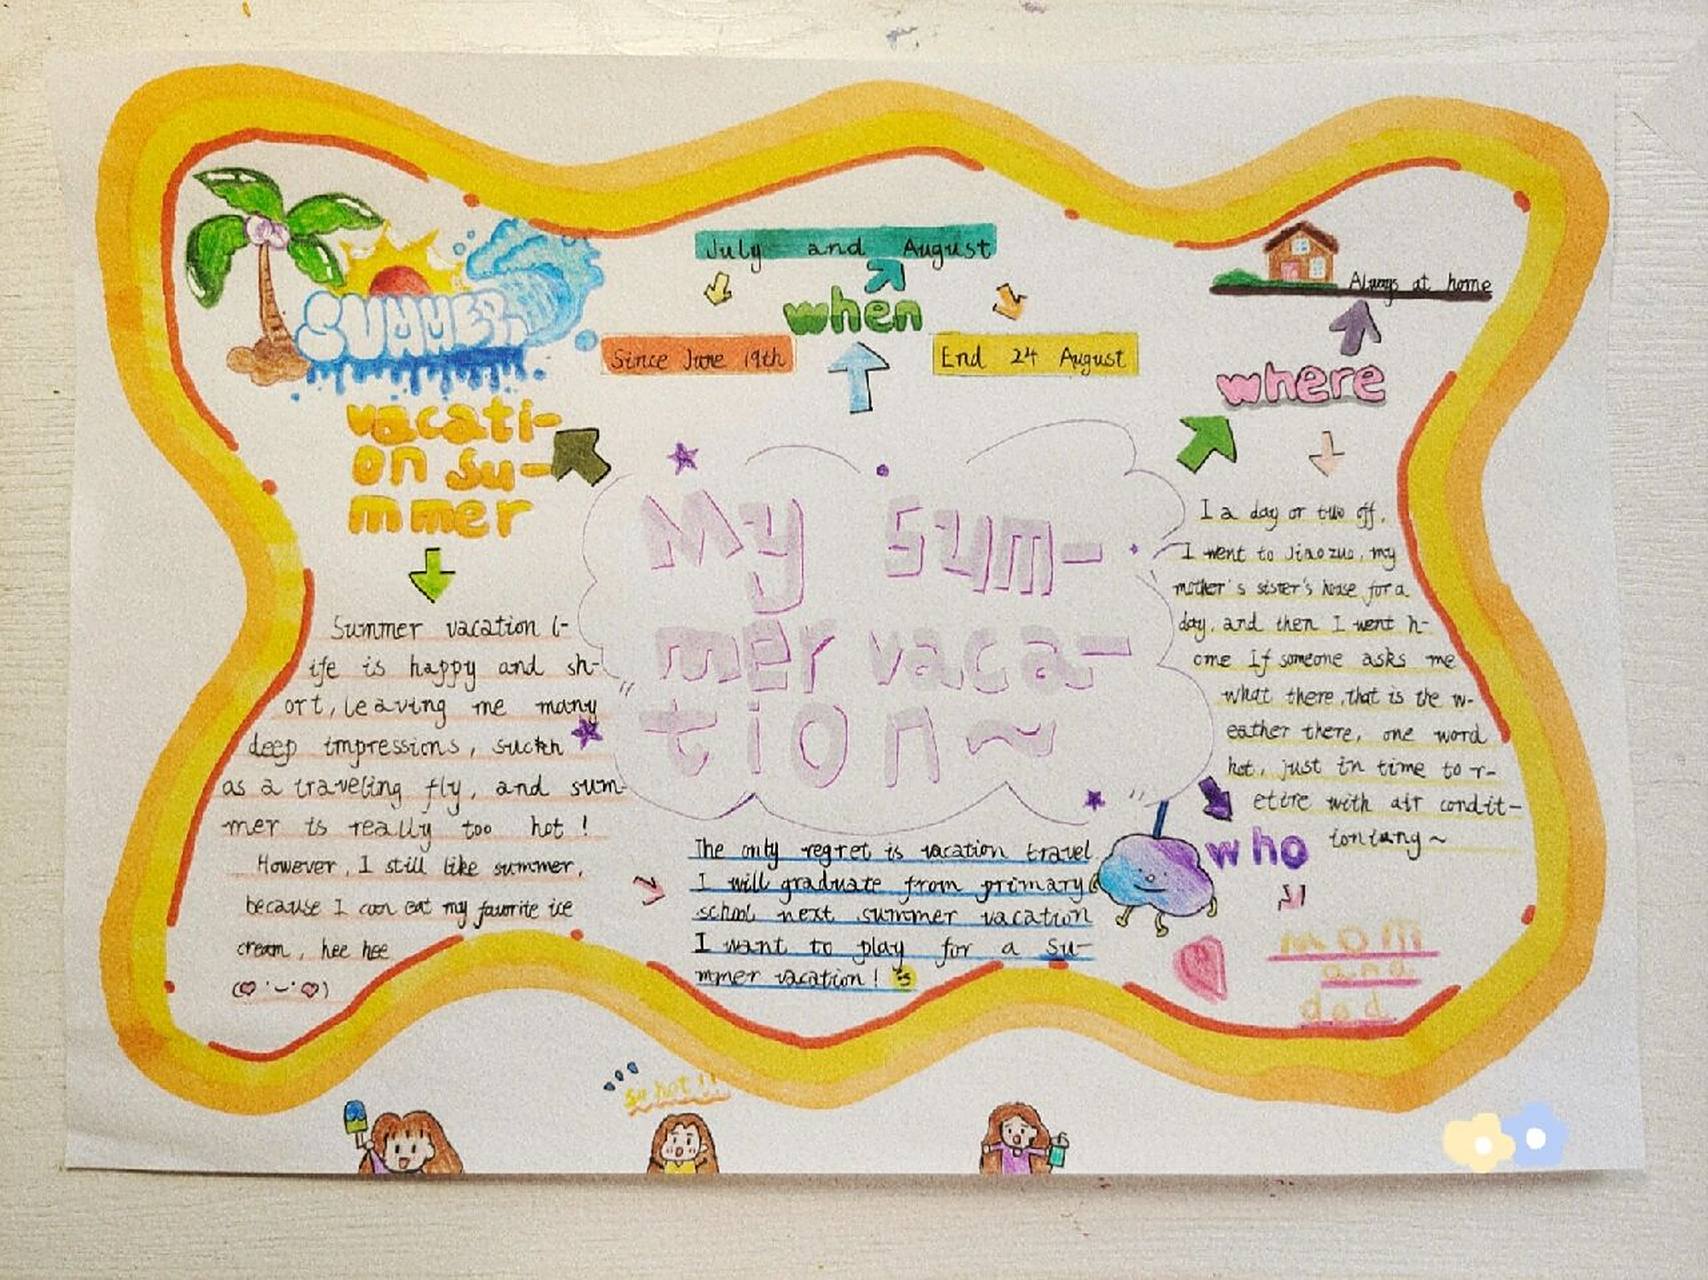 SUMMER
vacati-
on su-
mmer
Summer vacation l-
ife is happy and sh-
ort, leaving me many
deep impressions, such
as a traveling fly, and sum-
mer is really too hot!
However, I still like summer,
because I can eat my favorite ice
cream, hee hee
July and August
when
Since June 19th
End 24 August
My sum-
mer vaca-
tion~
The only regret is vacation travel
I will graduate from primary
school next summer vacation
I want to play for a su-
mmer vacation!
Always at home
where
I a day or two off,
I went to Jiaozuo, my
mother's sister's house for a
day, and then I went h-
ome If someone asks me
what there, that is the w-
eather there, one word
hot, just in time to r-
etire with air condit-
who
mom
and
dad
so hot!!